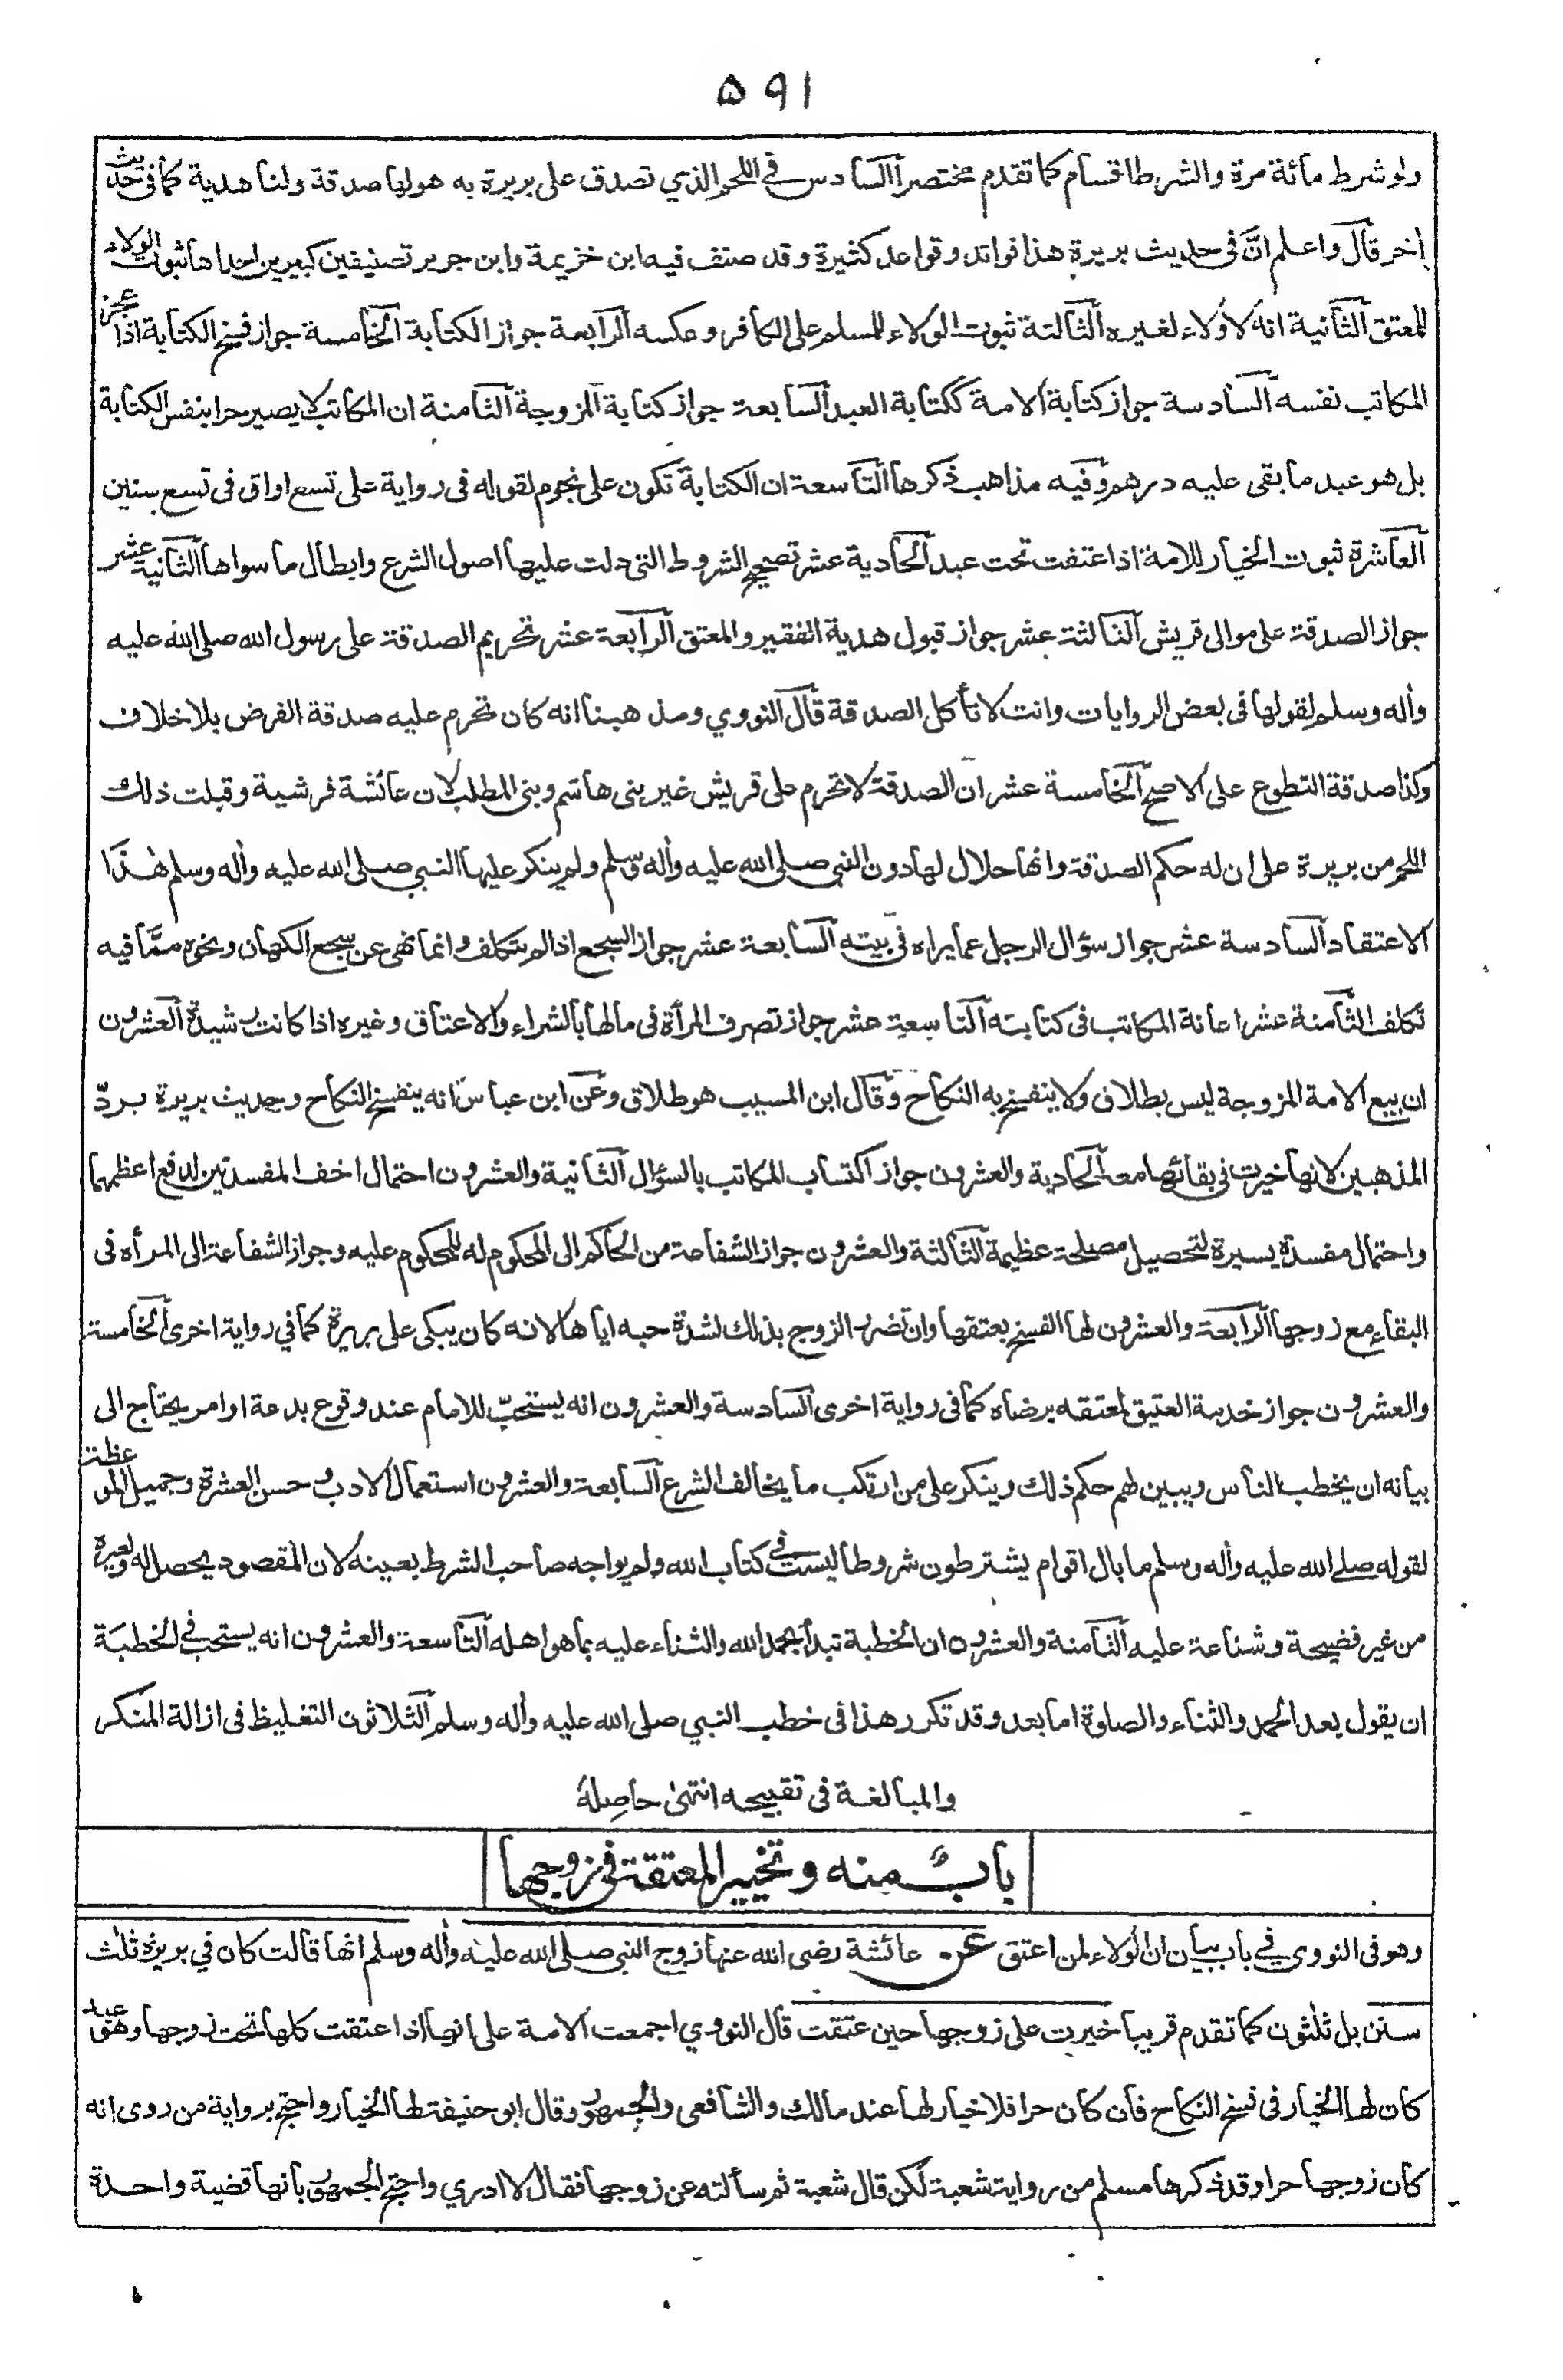 ٥٩١
ولو شرط مائة مرة والشرط اقسام كما تقدم مختصرا السادس في اللحم الذي تصدق على بريرة به هو لها صدقة ولنا هدية كما في حديث
أخر قال واعلم انّ في حديث بريرة هذا فوائد وقواعد كثيرة وقد صنف فيه ابن خزيمة وابن جرير تصنيفين كبيرين احداها ثبوت الولاء
للمعتق الثانية انه لا ولاء لغيره الثالثة ثبوت الولاء للمسلم على الكافر وعكسه الرابعة جواز الكتابة الخامسة جواز فسخ الكتابة اذا عجز
المكاتب نفسه السادسة جواز كتابة الامة ككتابة العبد السابعة جواز كتابة المزوجة الثامنة ان المكاتب لا يصير حرا بنفس الكتابة
بل هو عبد ما بقى عليه درهم وفيه مذاهب ذكرها التاسعة ان الكتابة تكون على نجوم لقوله فى رواية على تسع اواق فى تسع سنين
العاشرة ثبوت الخيار للامة اذا عتقت تحت عبد الحادية عشر تصحيح الشروط التى دلت عليها اصول الشرع وابطال ما سواها الثانية عشر
جواز الصدقة على موالى قريش الثالثة عشر جواز قبول هدية الفقير والمعتق الرابعة عشر تحريم الصدقة على رسول الله صلى الله عليه
وأله وسلم لقولها فى بعض الروايات وانت لا تأكل الصدقة قال النووي ومذهبنا انه كان تحرم عليه صدقة الفرض بلا خلاف
وكذا صدقة التطوع على الاصح الخامسة عشر ان الصدقة لا تحرم على قريش غير بنى هاشم وبنى المطلب لان عائشة قرشية وقبلت ذلك
اللحم من بريرة على ان له حكم الصدقة وانها حلال لها دون النبي صلى الله عليه وأله وسلم ولم ينكر عليها النبي صلى الله عليه وأله وسلم هذا
الاعتقاد السادسة عشر جواز سؤال الرجل عما يراه فى بيته السابعة عشر جواز السجع اذا لم يتكلف وانما نهى عن سجع الكهان ونحوه ممّا فيه
تكلف الثامنة عشر اعانة المكاتب فى كتابته التاسعة عشر جواز تصرف المرأة فى مالها بالشراء والاعتاق وغيره اذا كانت رشيدة العشرون
ان بيع الامة المزوجة ليس بطلاق ولا ينفسخ به النكاح وقال ابن المسيب هو طلاق وعن ابن عباس انه ينفسخ النكاح وحديث بريرة يردّ
المذهبين لانها خيرت فى بقائها معه الحادية والعشرون جواز اكتساب المكاتب بالسؤال الثانية والعشرون احتمال اخف المفسدتين لدفع اعظمهما
واحتمال مفسدة يسيرة لتحصيل مصلحة عظيمة الثالثة والعشرون جواز الشفاعة من الحاكم الى المحكوم له للمحكوم عليه وجواز الشفاعة الى المرأة فى
البقاء مع زوجها الرابعة والعشرون لها الفسخ بعتقها وان تضرر الزوج بذلك لشدة حبه اياها لانه كان يبكى على بريرة كما في رواية اخرى الخامسة
والعشرون جواز خدمة العتيق لمعتقه برضاه كما فى رواية اخرى السادسة والعشرون انه يستحبّ للامام عند وقوع بدعة او امر يحتاج الى
بيانه ان يخطب الناس ويبين لهم حكم ذلك وينكر على من ارتكب ما يخالف الشرع السابعة والعشرون استعمال الادب وحسن العشرة وجميل الموعظة
لقوله صلى الله عليه وأله وسلم ما بال اقوام يشترطون شروطا ليست في كتاب الله ولم يواجه صاحب الشرط بعينه لان المقصود يحصل له ولغيره
من غير فضيحة وشناعة عليه الثامنة والعشرون ان الخطبة تبدأ بحمد الله والثناء عليه بما هو اهله التاسعة والعشرون انه يستحب في الخطبة
ان يقول بعد الحمد والثناء والصلوة اما بعد وقد تكرر هذا فى خطب النبي صلى الله عليه وأله وسلم الثلاثون التغليظ فى ازالة المنكر
والمبالغة فى تقبيحه انتهى حاصله
باب منه وتخيير المعتقة فى زوجها
وهو فى النووي في باب بيان ان الولاء لمن اعتق عن عائشة رضى الله عنها زوج النبى صلى الله عليه وأله وسلم انها قالت كان في بريرة ثلث
سنن بل ثلثون كما تقدم قريبا خيرت على زوجها حين عتقت قال النووي اجمعت الامة على انها اذا عتقت كلها تحت زوجها وهو عبد
كان لها الخيار فى فسخ النكاح فان كان حرا فلا خيار لها عند مالك والشافعى والجمهور وقال ابو حنيفة لها الخيار واحتج برواية من روى انه
كان زوجها حرا وقد ذكرها مسلم من رواية شعبة لكن قال شعبة ثم سألته عن زوجها فقال لا ادري واحتج الجمهور بانها قضية واحدة